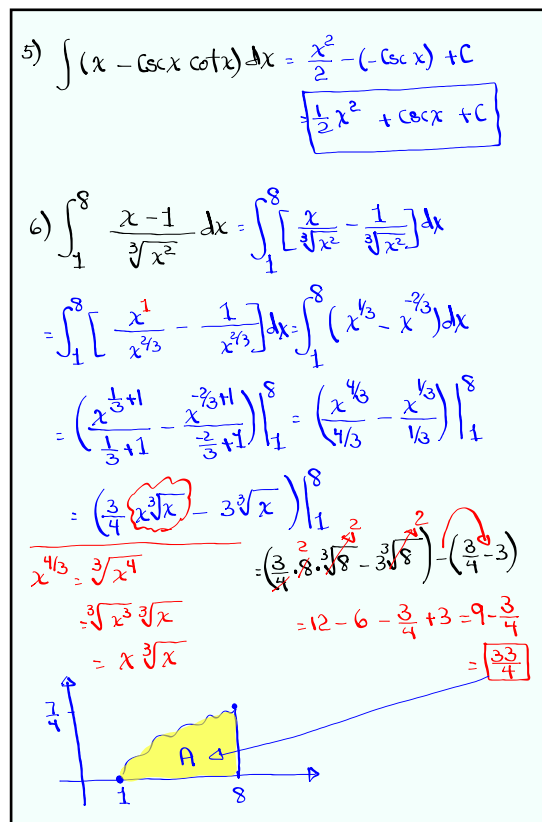 5) ∫(x − Cscx cotx) dx = x²/2 − (−Cscx) + C
= 1/2 x² + Cscx + C
6) ∫₁⁸ (x − 1)/∛x² dx = ∫₁⁸ [x/∛x² − 1/∛x²] dx
= ∫₁⁸ [x¹/x^(2/3) − 1/x^(2/3)] dx = ∫₁⁸ (x^(1/3) − x^(−2/3)) dx
= (x^(1/3+1)/(1/3+1) − x^(−2/3+1)/(−2/3+1)) |₁⁸ = (x^(4/3)/(4/3) − x^(1/3)/(1/3)) |₁⁸
= (3/4 x∛x − 3∛x) |₁⁸
x^(4/3) = ∛x⁴
= ∛x³ ∛x
= x ∛x
= (3/4 · 8 · ∛8 − 3∛8) − (3/4 − 3)
2 2 2
= 12 − 6 − 3/4 + 3 = 9 − 3/4
= 33/4
7/4
A
1 8